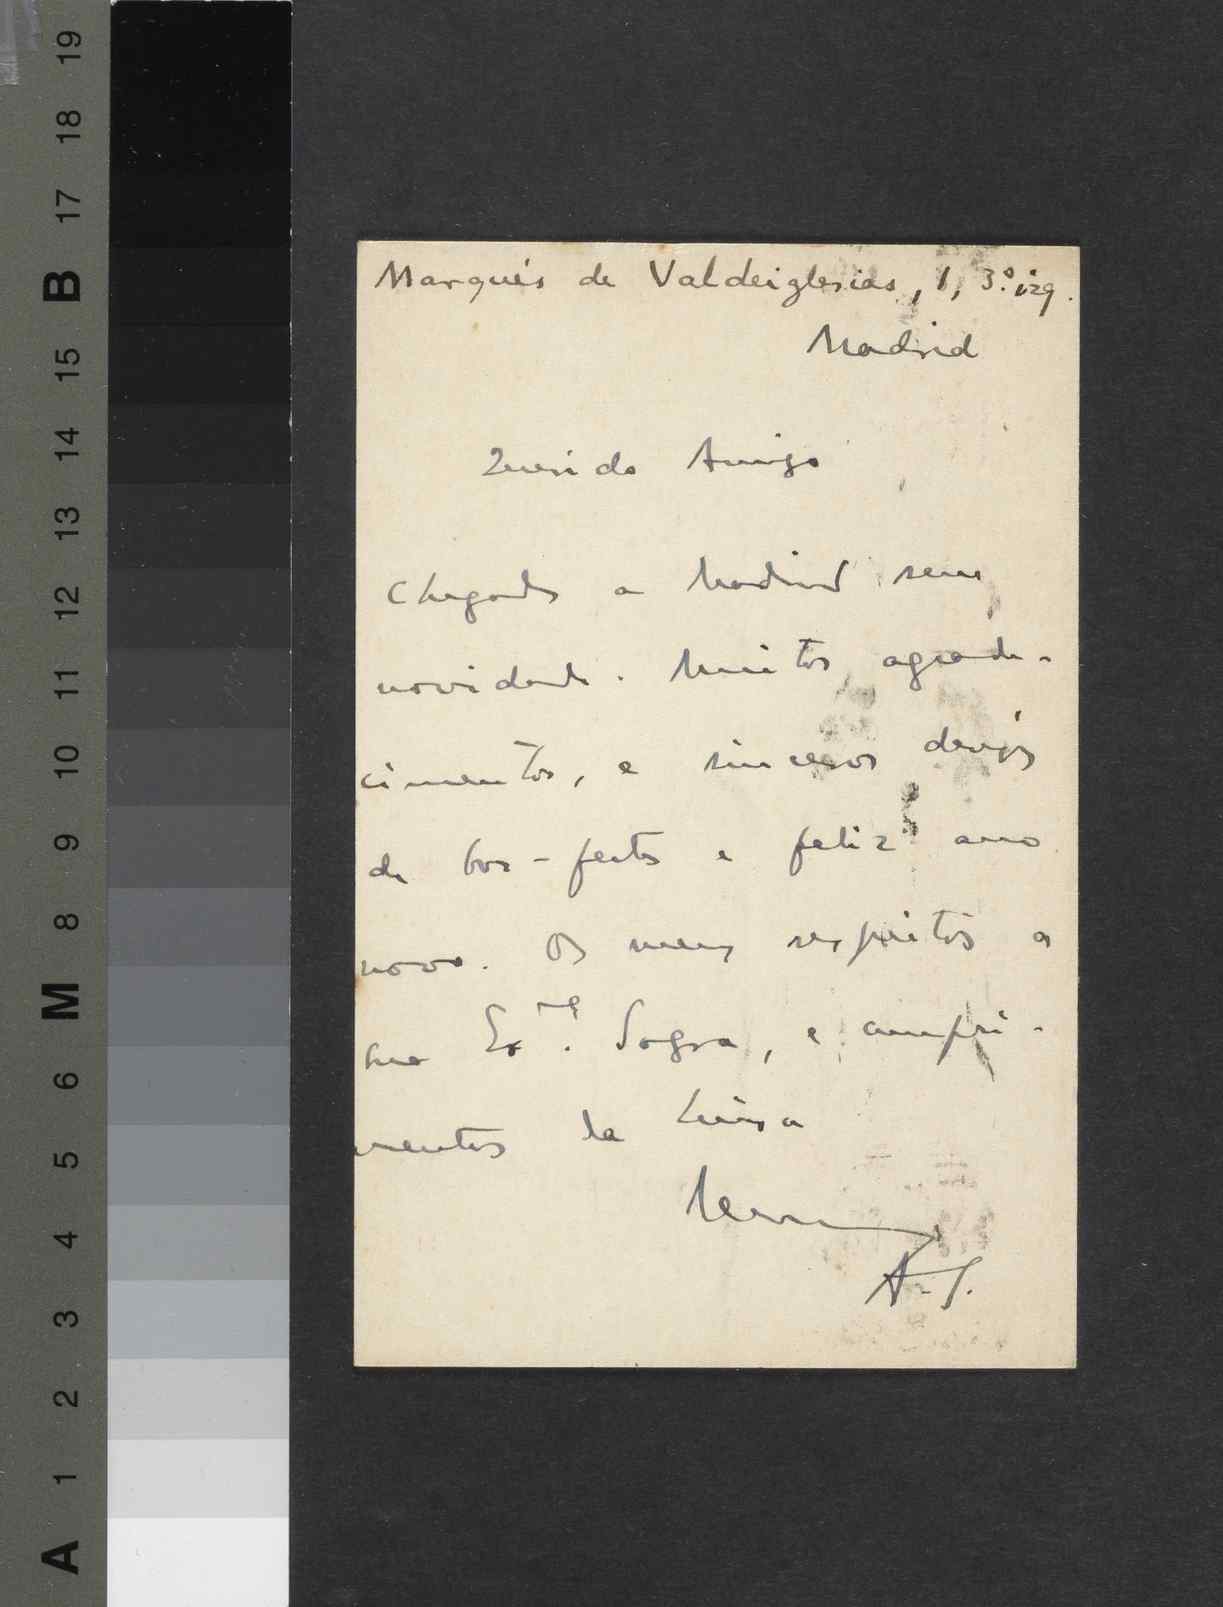 19
18
17
B
15
14
13
12
11
10
9
8
M
6
5
4
3
2
1
A
Marqués de Valdeiglesias, 1, 3.º izq.
Madrid
Querido Amigo
Chegados a Madrid sem
novidade. Muitos agrade-
cimentos, e sinceros desejos
de boas-festas e feliz ano
novo. Os meus respeitos a
sua Ex.ma Sogra, e cumpri-
mentos da Luisa
A. S.